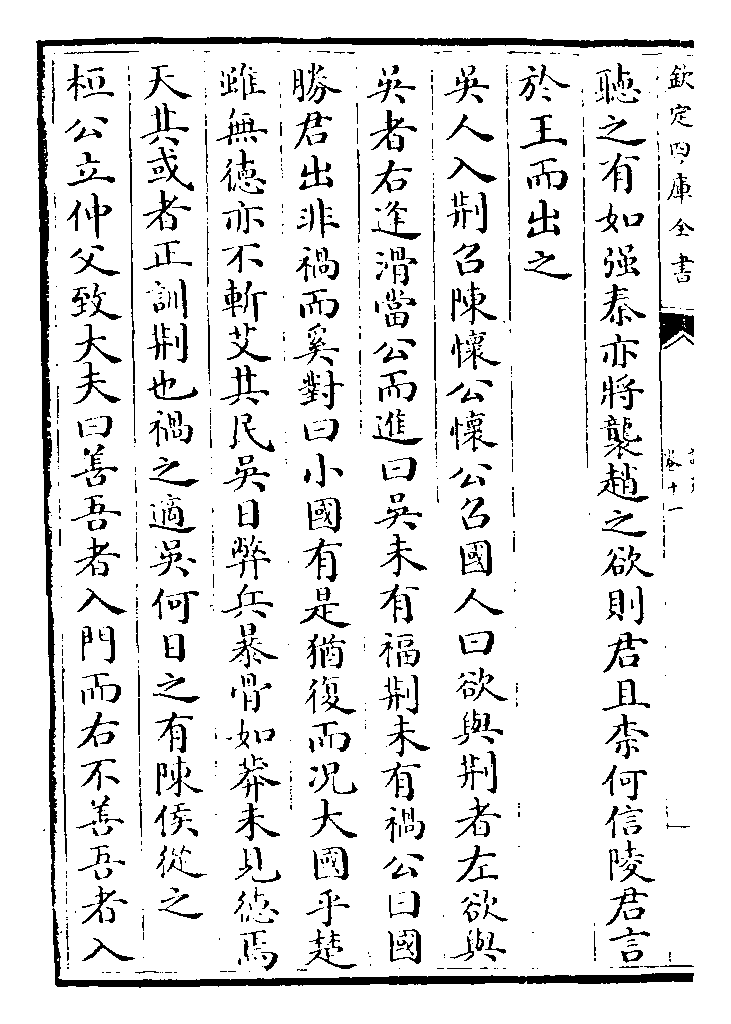 欽定四庫全書
卷十一
聽之有如强秦亦將襲趙之欲則君且柰何信陵君言
於王而出之
吳人入荆召陳懷公懷公召國人曰欲與荆者左欲與
吳者右逢滑當公而進曰吳未有福荆未有禍公曰國
勝君出非禍而奚對曰小國有是猶復而况大國乎楚
雖無德亦不斬艾其民吳日弊兵暴骨如莽未見德焉
天其或者正訓荆也禍之適吳何日之有陳侯從之
桓公立仲父致大夫曰善吾者入門而右不善吾者入